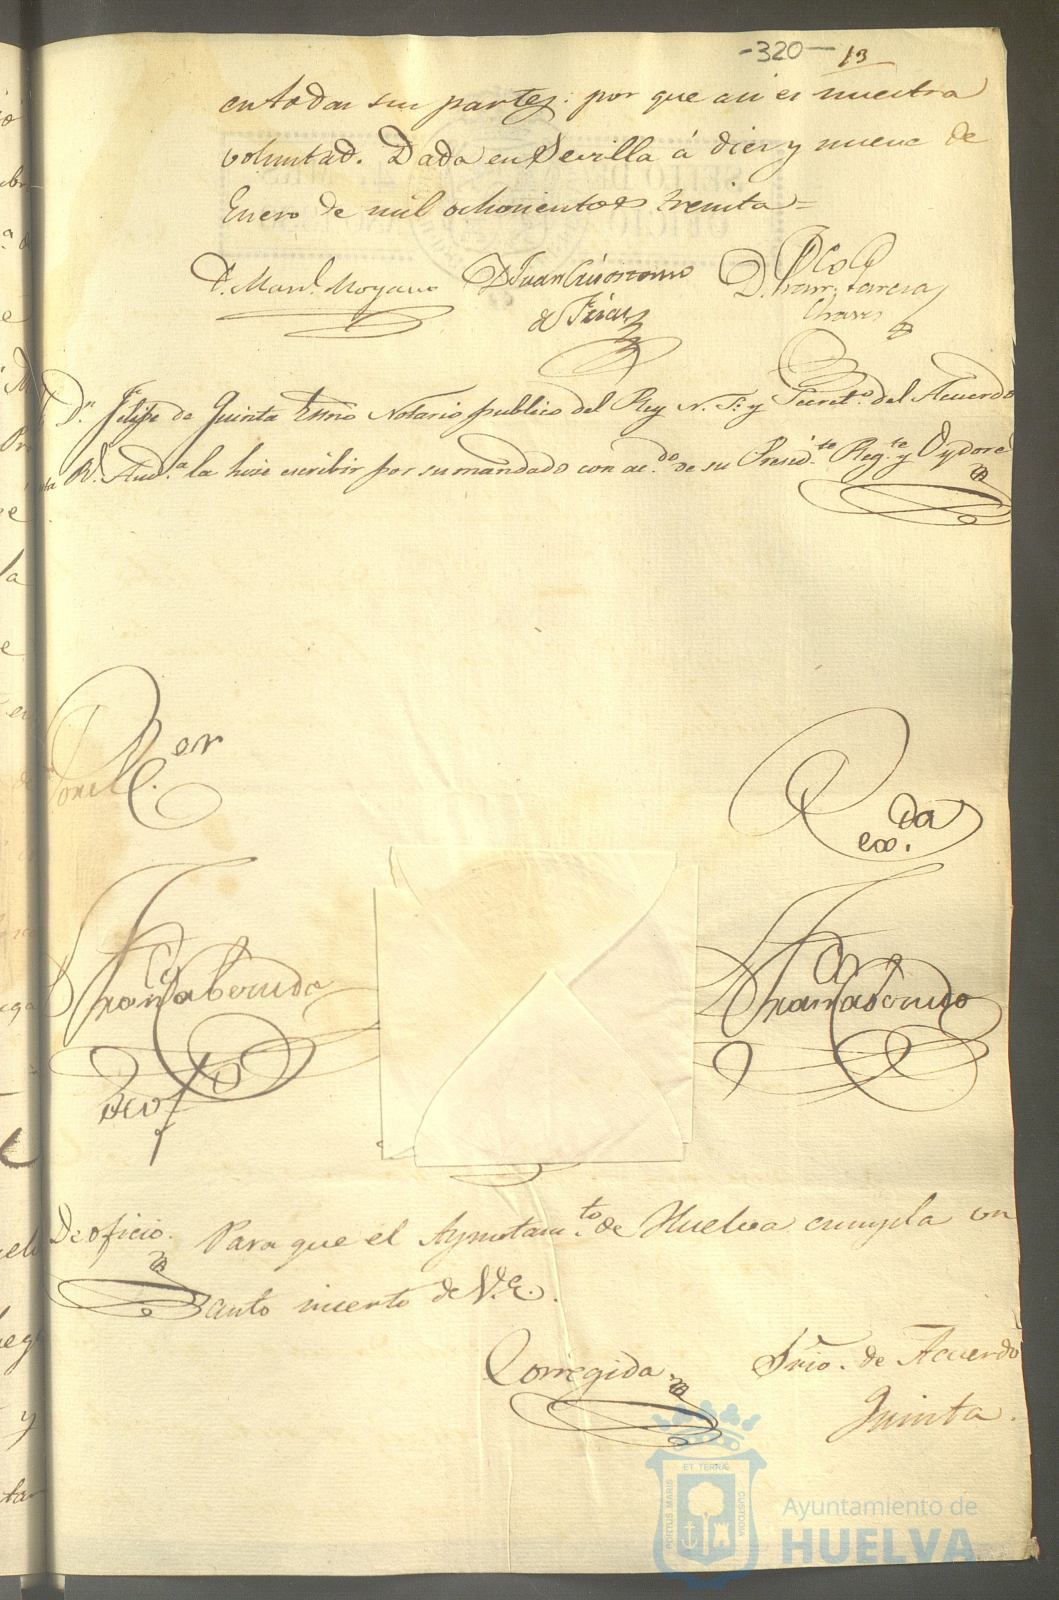 -320- 13
en todas sus partes: por que asi es nuestra
voluntad. Dada en Sevilla á diez y nueve de
Enero de mil ochocientos treinta=
Dn. Manl. Moyano
D Juan Crisostomo
de Frias
D. Garcia
Dn. Felipe de Quinta Esno Notario publico del Rey N. Sr. y Secreto. del Acuerdo
Rl. Auda. la hice escribir por su mandado con acdo. de su Presidte. Regte. y Oydores
or
Rda
Franco Taboruda
Franco Taboruda
De oficio. Para que el Ayuntamto. de Huelva cumpla un
auto inserto de V.E.
Corregida
Srio. de Acuerdo
Quinta.
PORTUS MARIS
ET TERRÆ
CUSTODIA
Ayuntamiento de
HUELVA